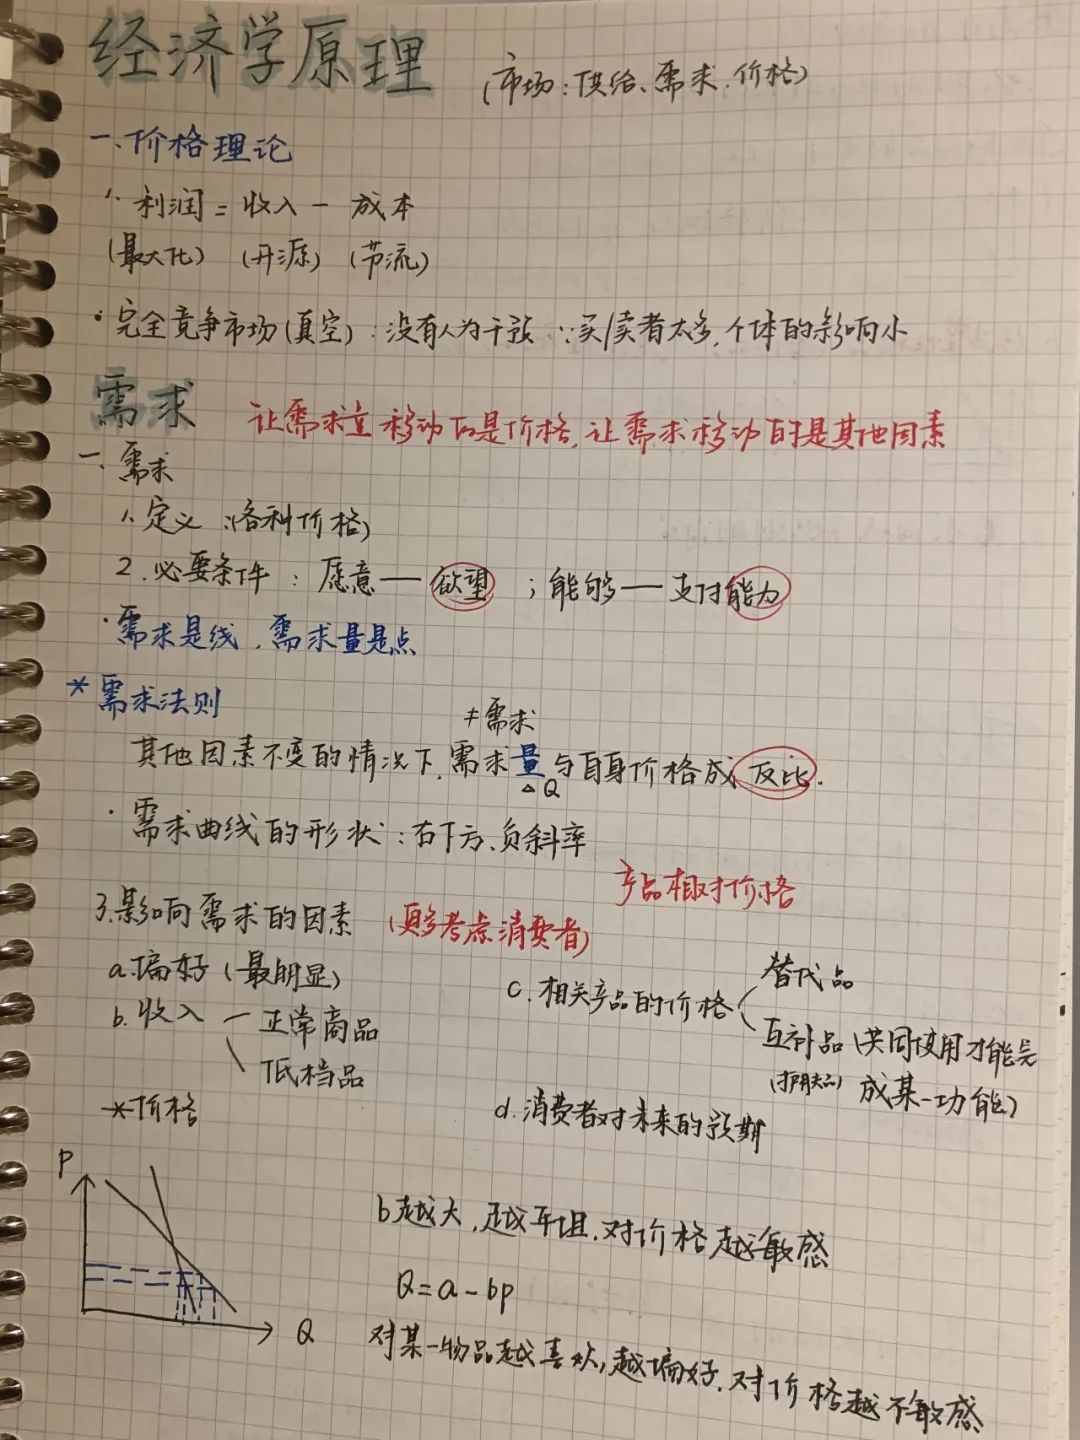 经济学原理 (市场:供给、需求、价格)
一、价格理论
1. 利润 = 收入 - 成本
(最大化) (开源) (节流)
· 完全竞争市场(真空):没有人为干预 ∵买/卖者太多,个体的影响小
需求 让需求量移动的是价格,让需求移动的是其他因素
一、需求
1. 定义:(各种价格)
2. 必要条件:愿意——欲望;能够——支付能力
· 需求是线,需求量是点
* 需求法则
≠需求
其他因素不变的情况下,需求量与自身价格成反比.
△Q
· 需求曲线的形状:右下方、负斜率
产品相对价格
3. 影响需求的因素 (更多考虑消费者)
a. 偏好(最明显)
b. 收入 — 正常商品
低档品
c. 相关产品的价格 替代品
互补品(共同使用才能完
成某一功能)
*价格
d. 消费者对未来的预期
P
Q
b越大,越平坦,对价格越敏感
Q=a-bp
对某一物品越喜欢,越偏好,对价格越不敏感